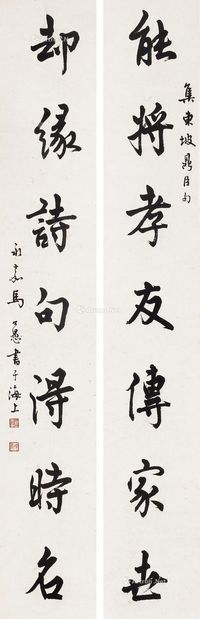 集東坡鼎臣句
能將孝友傳家世
却緣詩句得時名
永嘉馬公愚書于海上